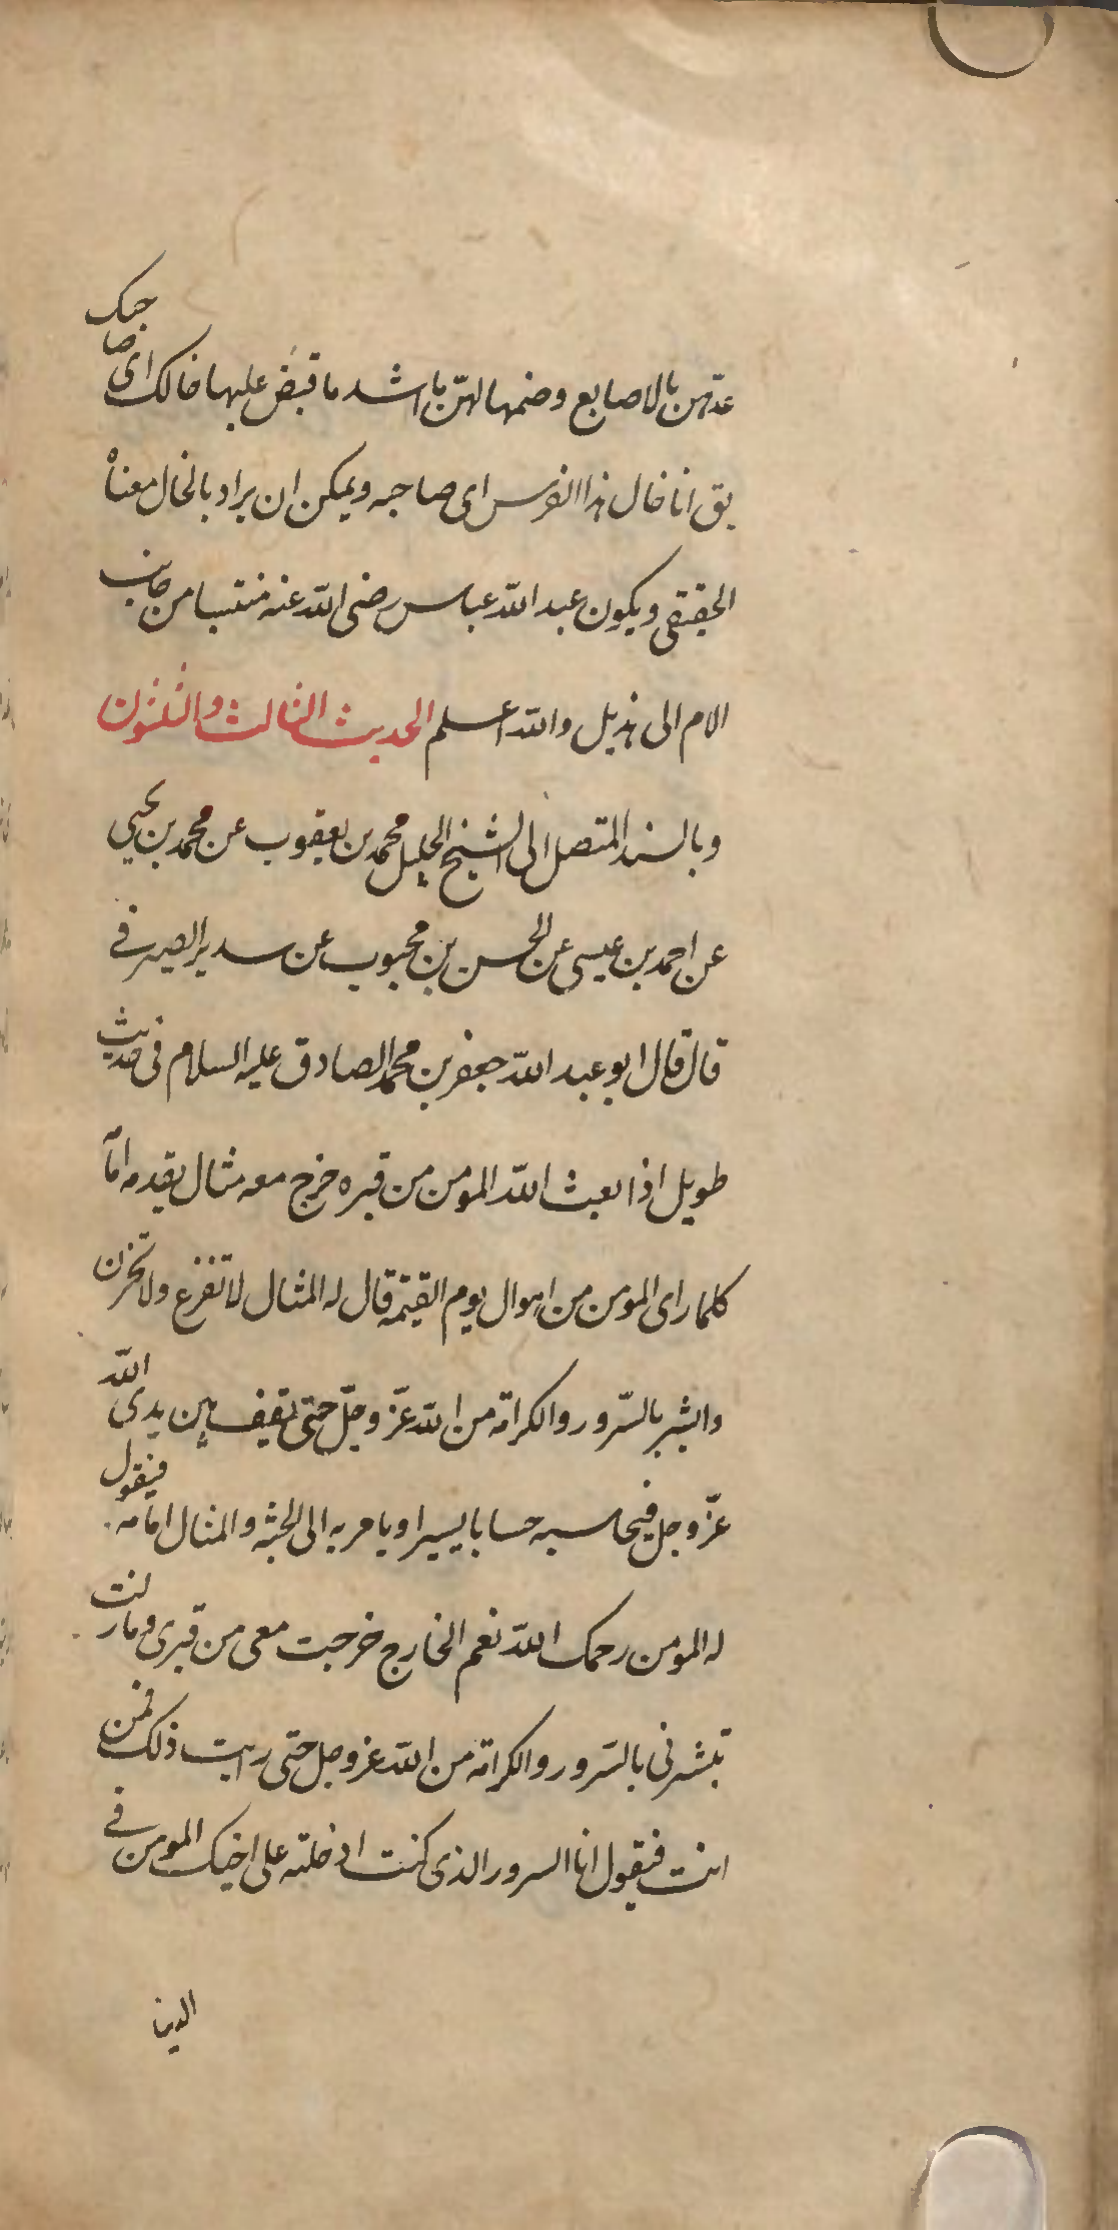 عدّهن بالاصابع وضمها لهنّ باشد ما قبض عليها خالك اى صاحبك
يق انا خال هذا الفرس اى صاحبه ويمكن ان يراد بالخال معناه
الحقيقى ويكون عبد الله عباس رضى الله عنه منتسبا من جانب
الام الى هذيل والله اعلم الحديث الثالث والثلثون
وبالسند المتصل الى الشيخ الجليل محمد بن يعقوب عن محمد بن يحيى
عن احمد بن عيسى عن الحسن بن محبوب عن سدير الصيرفى
قال قال ابو عبد الله جعفر بن محمد الصادق عليه السلام فى حديث
طويل اذا بعث الله المومن من قبره خرج معه مثال يقدمه امامه
كلما راى المومن من اهوال يوم القيمة قال له المثال لا تفزع ولا تحزن
وابشر بالسّرور والكرامة من الله عزّ وجلّ حتى يقف بين يدى الله
عزّ وجل فيحاسبه حسابا يسيرا ويامر به الى الجنّة والمثال امامه فيقول
له المومن رحمك الله نعم الخارج خرجت معى من قبرى وما زلت
تبشرنى بالسّرور والكرامة من الله عز وجل حتى رايت ذلك فمن
انت فيقول انا السرور الذى كنت ادخلته على اخيك المومن فى
الدنيا